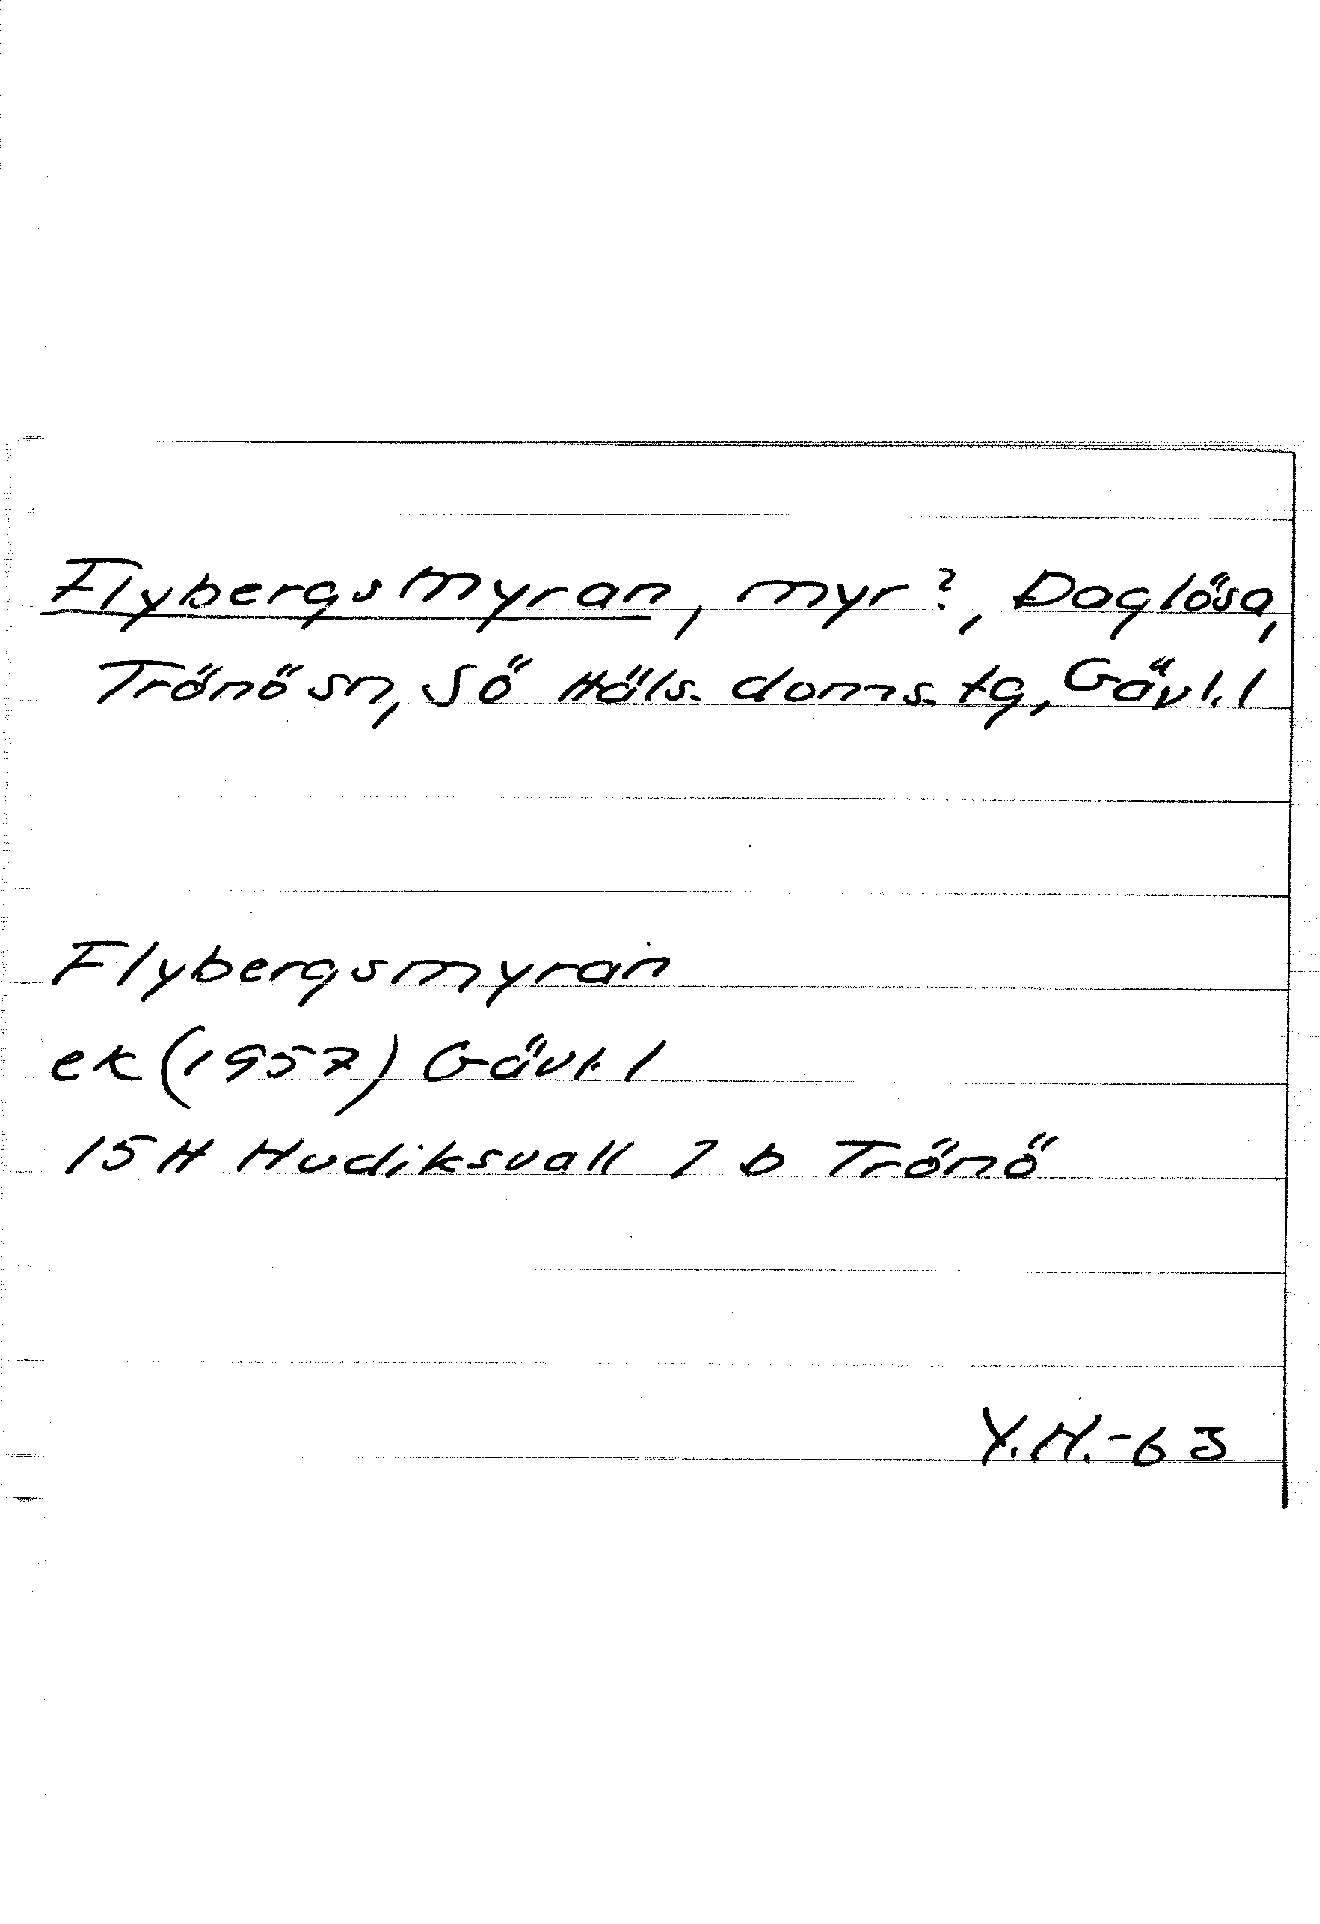 Flybergsmyran, myr?, Daglösa,
Trönö sn, Sö Häls. doms. tg, Gävl. l
Flybergsmyran
ek (1957) Gävl. l
15H Hudiksvall 7 b Trönö
Y.H.-63